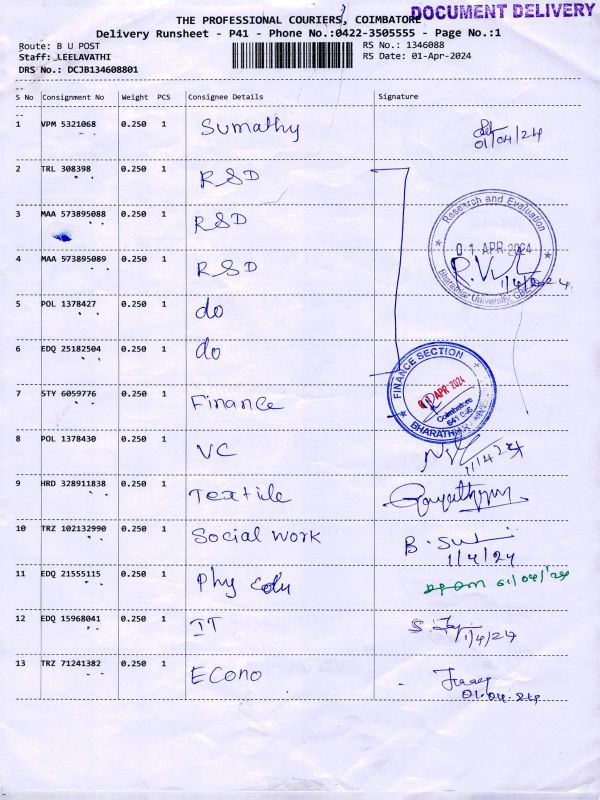 DOCUMENT DELIVERY
THE PROFESSIONAL COURIERS, COIMBATORE
Delivery Runsheet - P41 - Phone No.:0422-3505555 - Page No.:1
Route: B U POST RS No.: 1346088
Staff: LEELAVATHI RS Date: 01-Apr-2024
DRS No.: DCJB134608801
S No Consignment No Weight PCS Consignee Details Signature
1 VPM 5321068 0.250 1 Sumathy
01/04/24
2 TRL 308398 0.250 1 RSD
3 MAA 573895088 0.250 1 RSD
Research and Evaluation
01 APR 2024
Bharathiar University, CBE
4 MAA 573895089 0.250 1 RSD
1/4/2024.
5 POL 1378427 0.250 1 do
6 EDQ 25182504 0.250 1 do
FINANCE SECTION
01 APR 2024
Coimbatore
641 046
7 STY 6059776 0.250 1 Finance
8 POL 1378430 0.250 1 VC
1/4/24
9 HRD 328911838 0.250 1 Textile
10 TRZ 102132990 0.250 1 Social work
1/4/24
11 EDQ 21555115 0.250 1 Phy Edu
01/04/24
12 EDQ 15968041 0.250 1 IT
1/4/24
13 TRZ 71241382 0.250 1 Econo
01.04.24